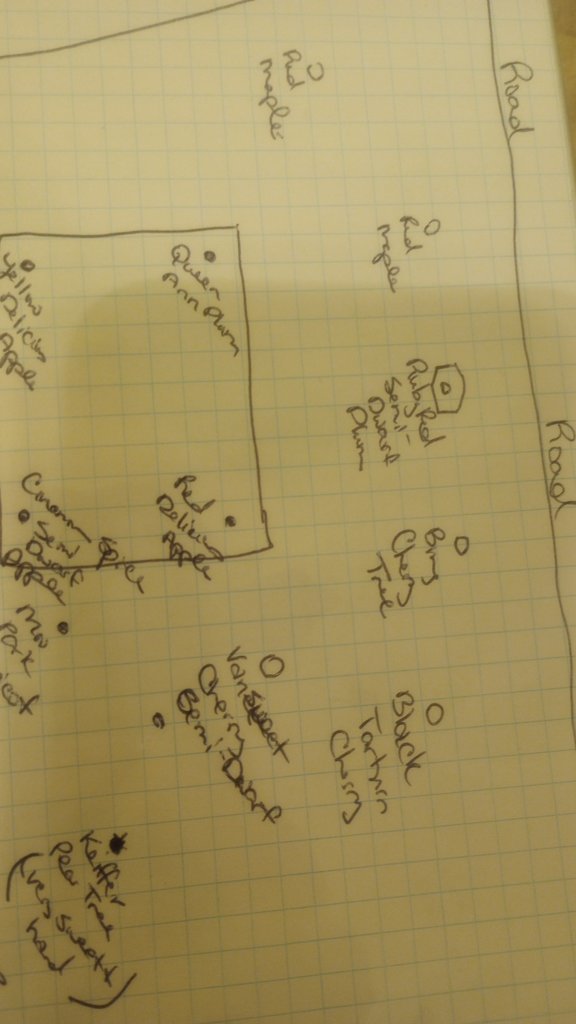 Road
Red
maples
Red
maple
Queen
Ann Plum
Yellow
Delicious
Apple
Ruby Red
Semi-
Dwarf
Plum
Road
Red
Delicious
Apple
Cinnamon Spice
Semi
Dwarf
Apple
Bing
Cherry
Tree
Moor
Park
Van Sweet
Cherry
Semi-Dwarf
Black
Tartarian
Cherry
Keiffer
Pear Tree
(very sweet +
hard)